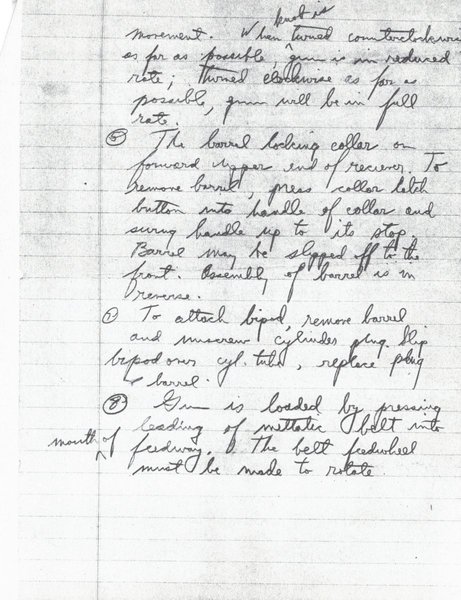 knob is
movement. When turned counterclockwise
as far as possible, ^ gun is in reduced
rate; turned clockwise as far as
possible, gun will be in full
rate.
⑥ The barrel locking collar on
forward upper end of reciever. To
remove barrel, press collar latch
button into handle of collar and
swing handle up to its stop.
Barrel may be slipped off to the
front. Assembly of barrel is in
reverse.
⑦ To attach bipod, remove barrel
and unscrew cylinder plug. Slip
bipod over cyl. tube, replace plug
& barrel.
⑧ Gun is loaded by pressing
leading of mettalic belt into
mouth of feedway. The belt feedwheel
must be made to rotate